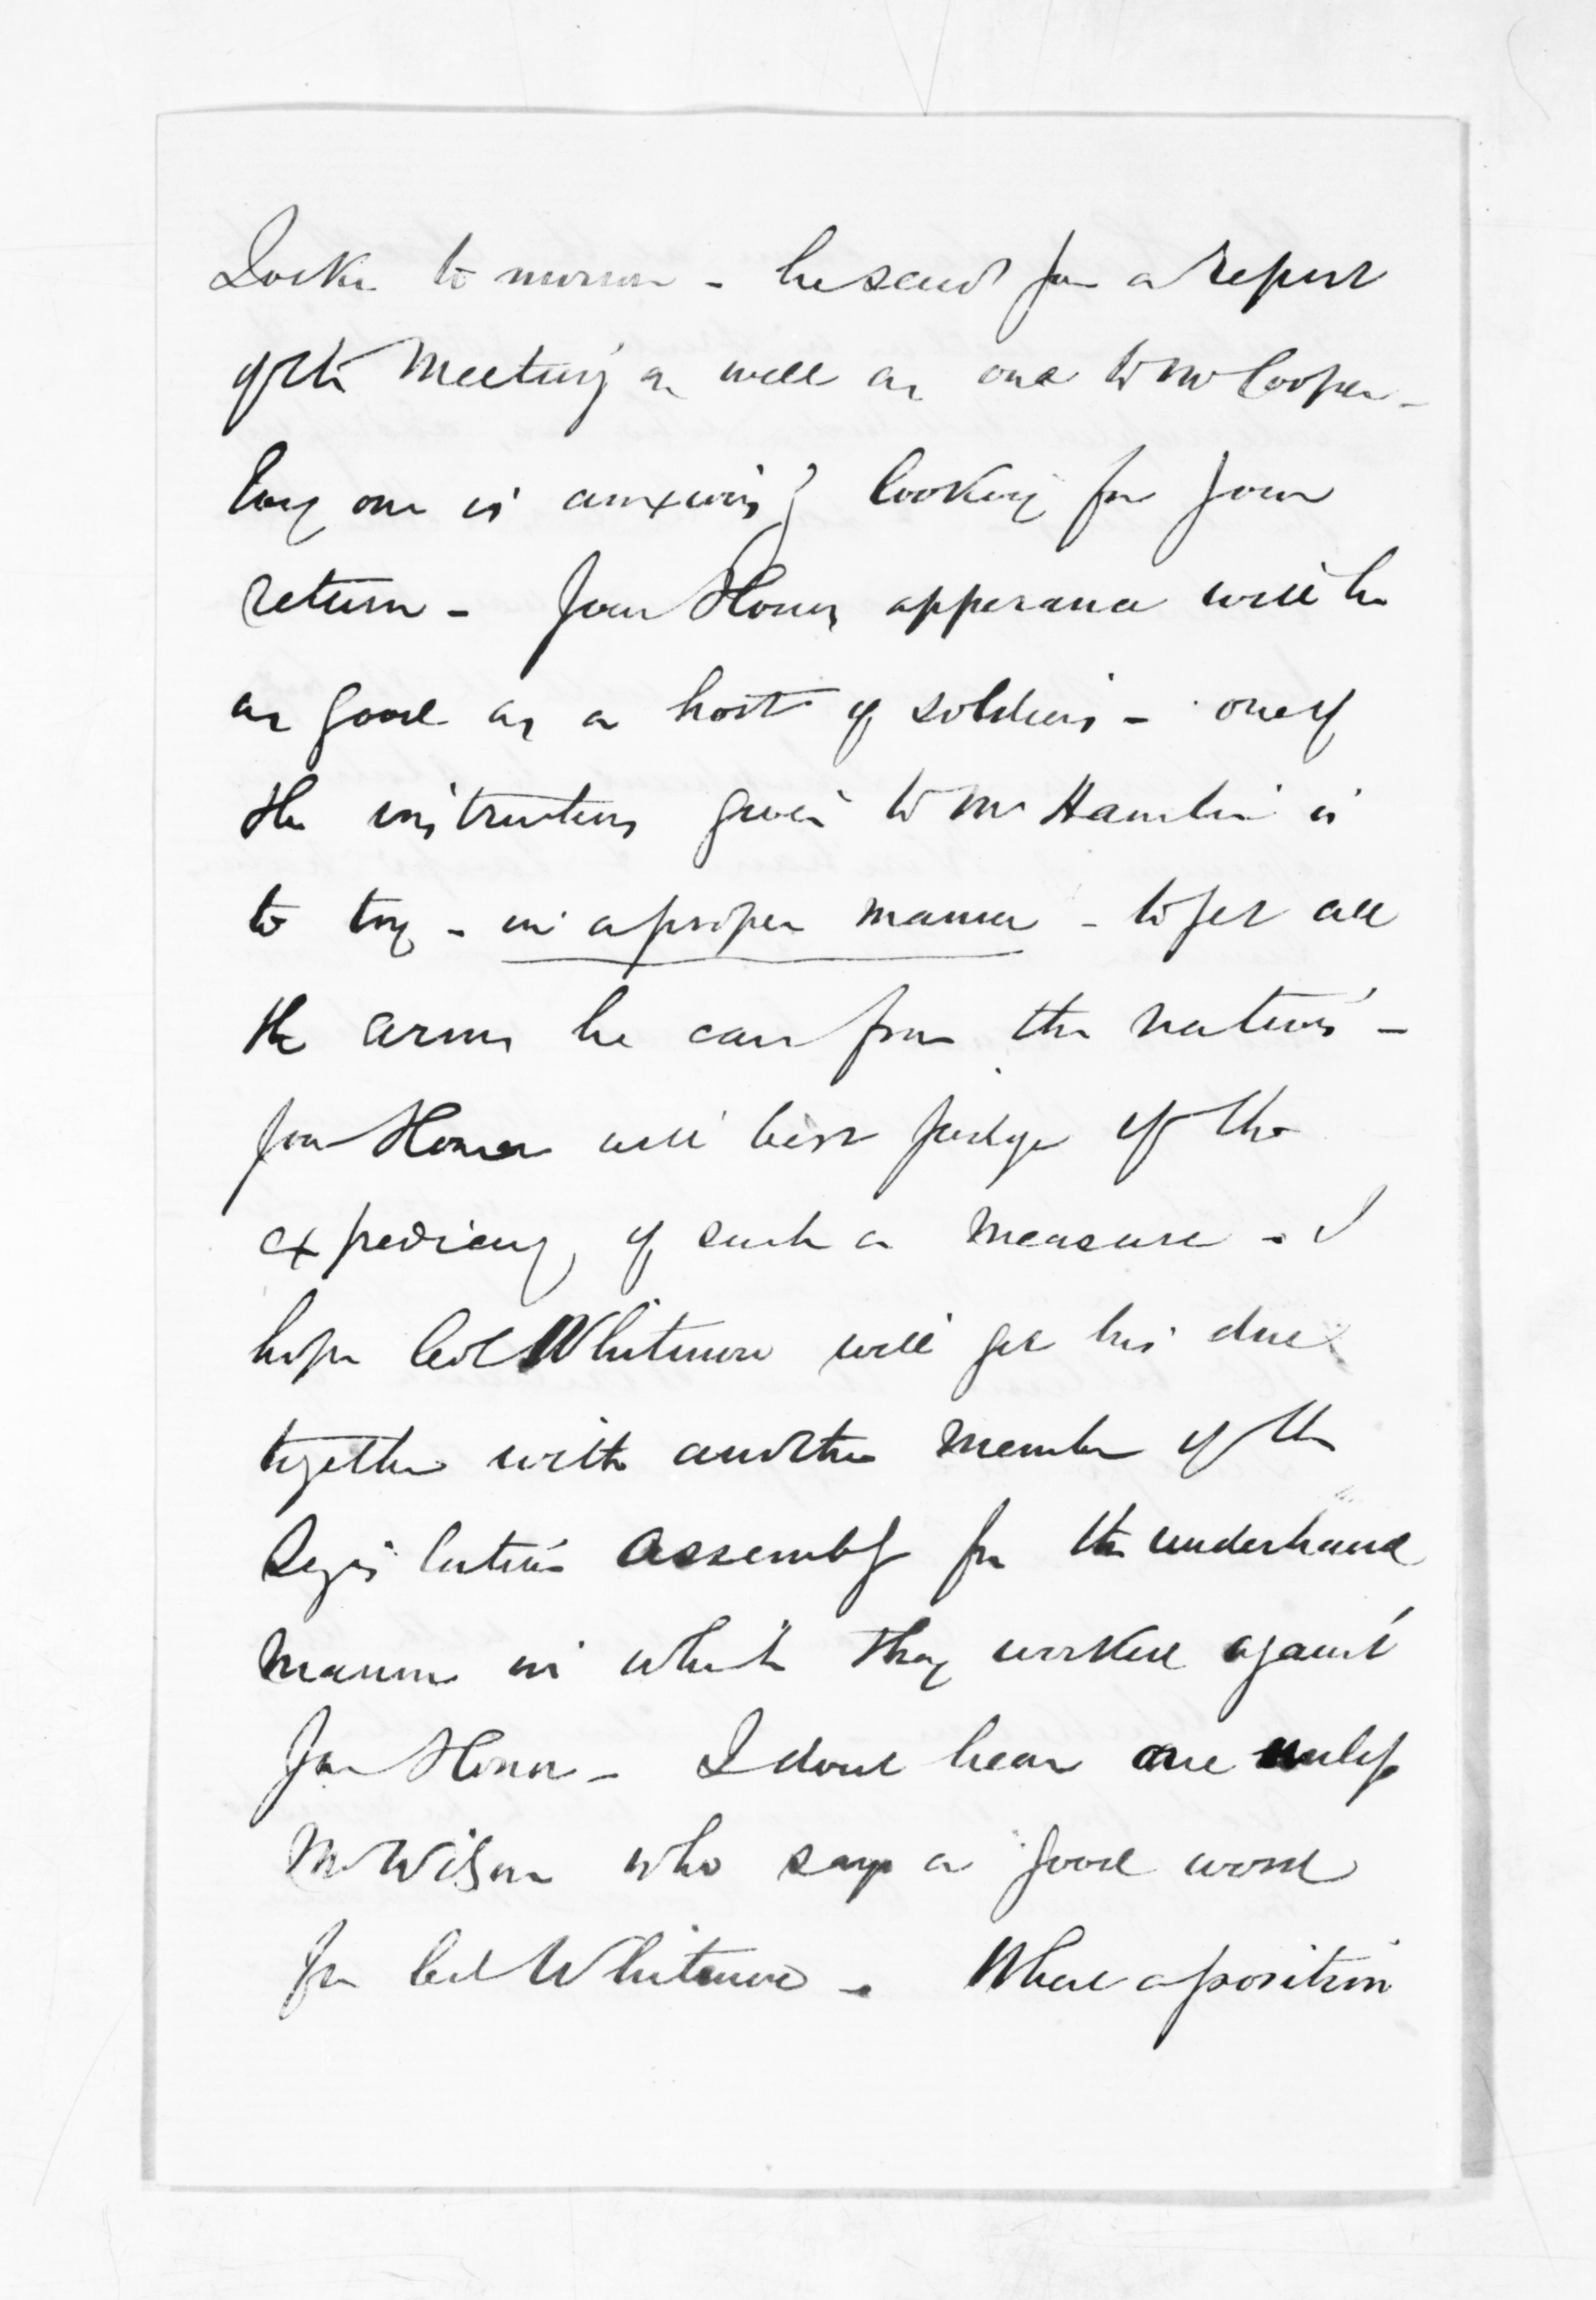 Locke to morrow - he send you a report
of the Meeting as well as one to Mr Cooper -
Every one is anxiously looking for your
return - Your Honors apperance will be
as good as a host of soldiers - one of
the instructions given to Mr Hamlin is
to try - in a proper manner - to get all
the arms he can from the natives -
Your Honor will best judge of the
expediency of such a measure - I
hope Col Whitmore will get his due
together with another member of the
Legislative assembly for the underhand
manner in which they worked against
Your Honor - I dont hear one unless
Mr Wilson who says a good word
for Col Whitmore - What a position